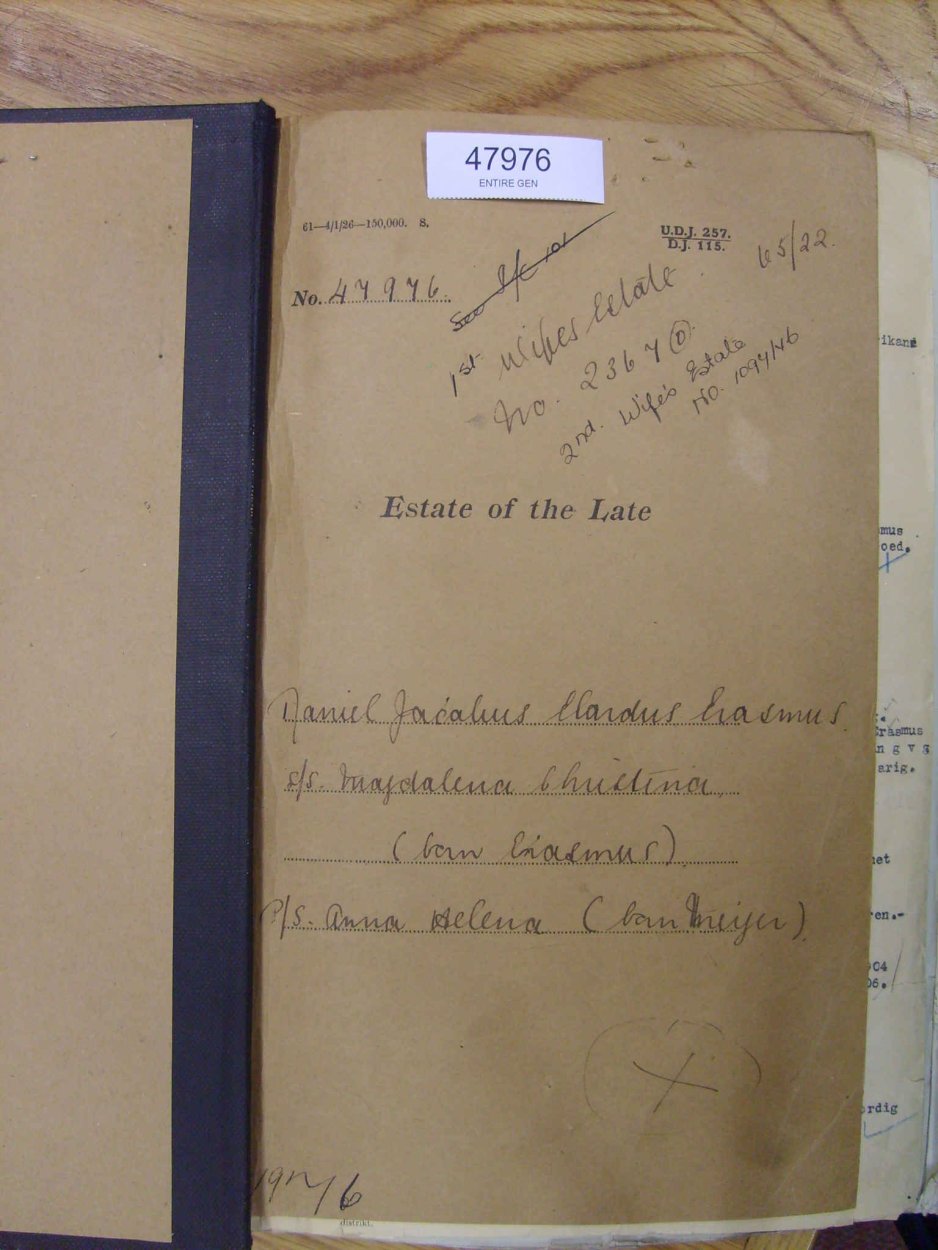 47976
ENTIRE GEN
61—4/1/26—150,000. S.
U.D.J. 257.
D.J. 115.
65/22.
No. 47976.
See
1st Wifes Estate
No. 2367
2nd. Wife's Estate
No. 1094/46
Estate of the Late
Daniel Jacobus Elardus Erasmus
s/s. Magdalena Christina
(born Erasmus)
P/S. Anna Helena (born Meijer)
X
distrikt.
ikans
mus
oed.
Erasmus
n g v s
arig.
het
en.-
04
06.
rdig